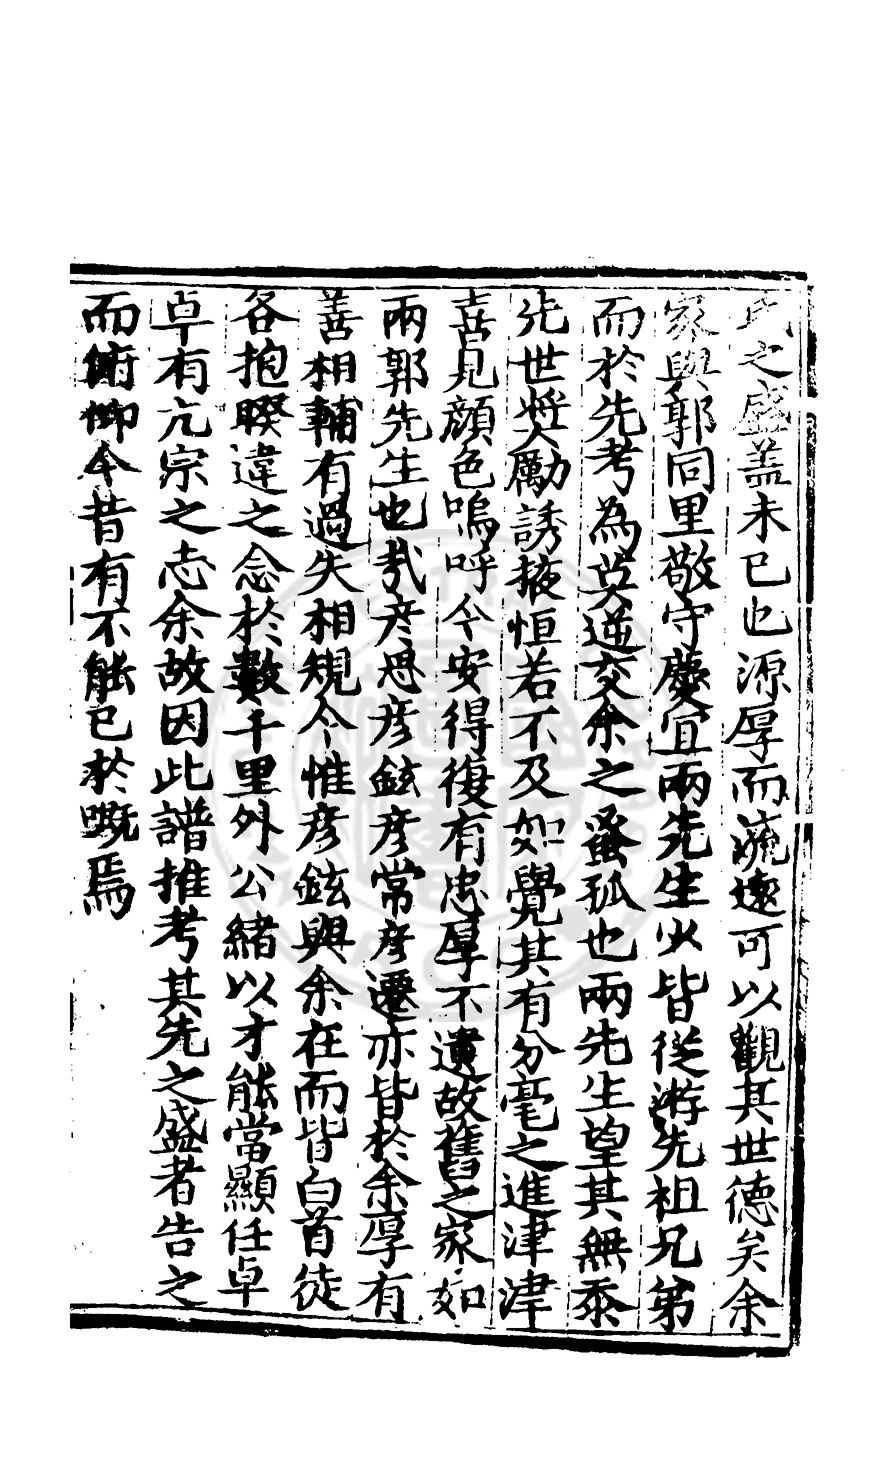 氏之盛盖未已也源厚而流遠可以觀其世德矣余
家與郭同里敬守慶宜兩先生少皆從游先祖兄弟
而於先考為莫逆交余之蚤孤也兩先生望其無忝
先世奬勵誘掖恒若不及如覺其有分毫之進津津
喜見顔色嗚呼今安得復有忠厚不遺故舊之家如
兩郭先生也㦲彦思彦鉉彦常彦遷亦皆於余厚有
善相輔有過失相規今惟彦鉉與余在而皆白首徒
各抱睽違之念於數千里外公緒以才能當顯任卓
卓有亢宗之志余故因此譜推考其先之盛者告之
而俯仰今昔有不能已於嘅焉